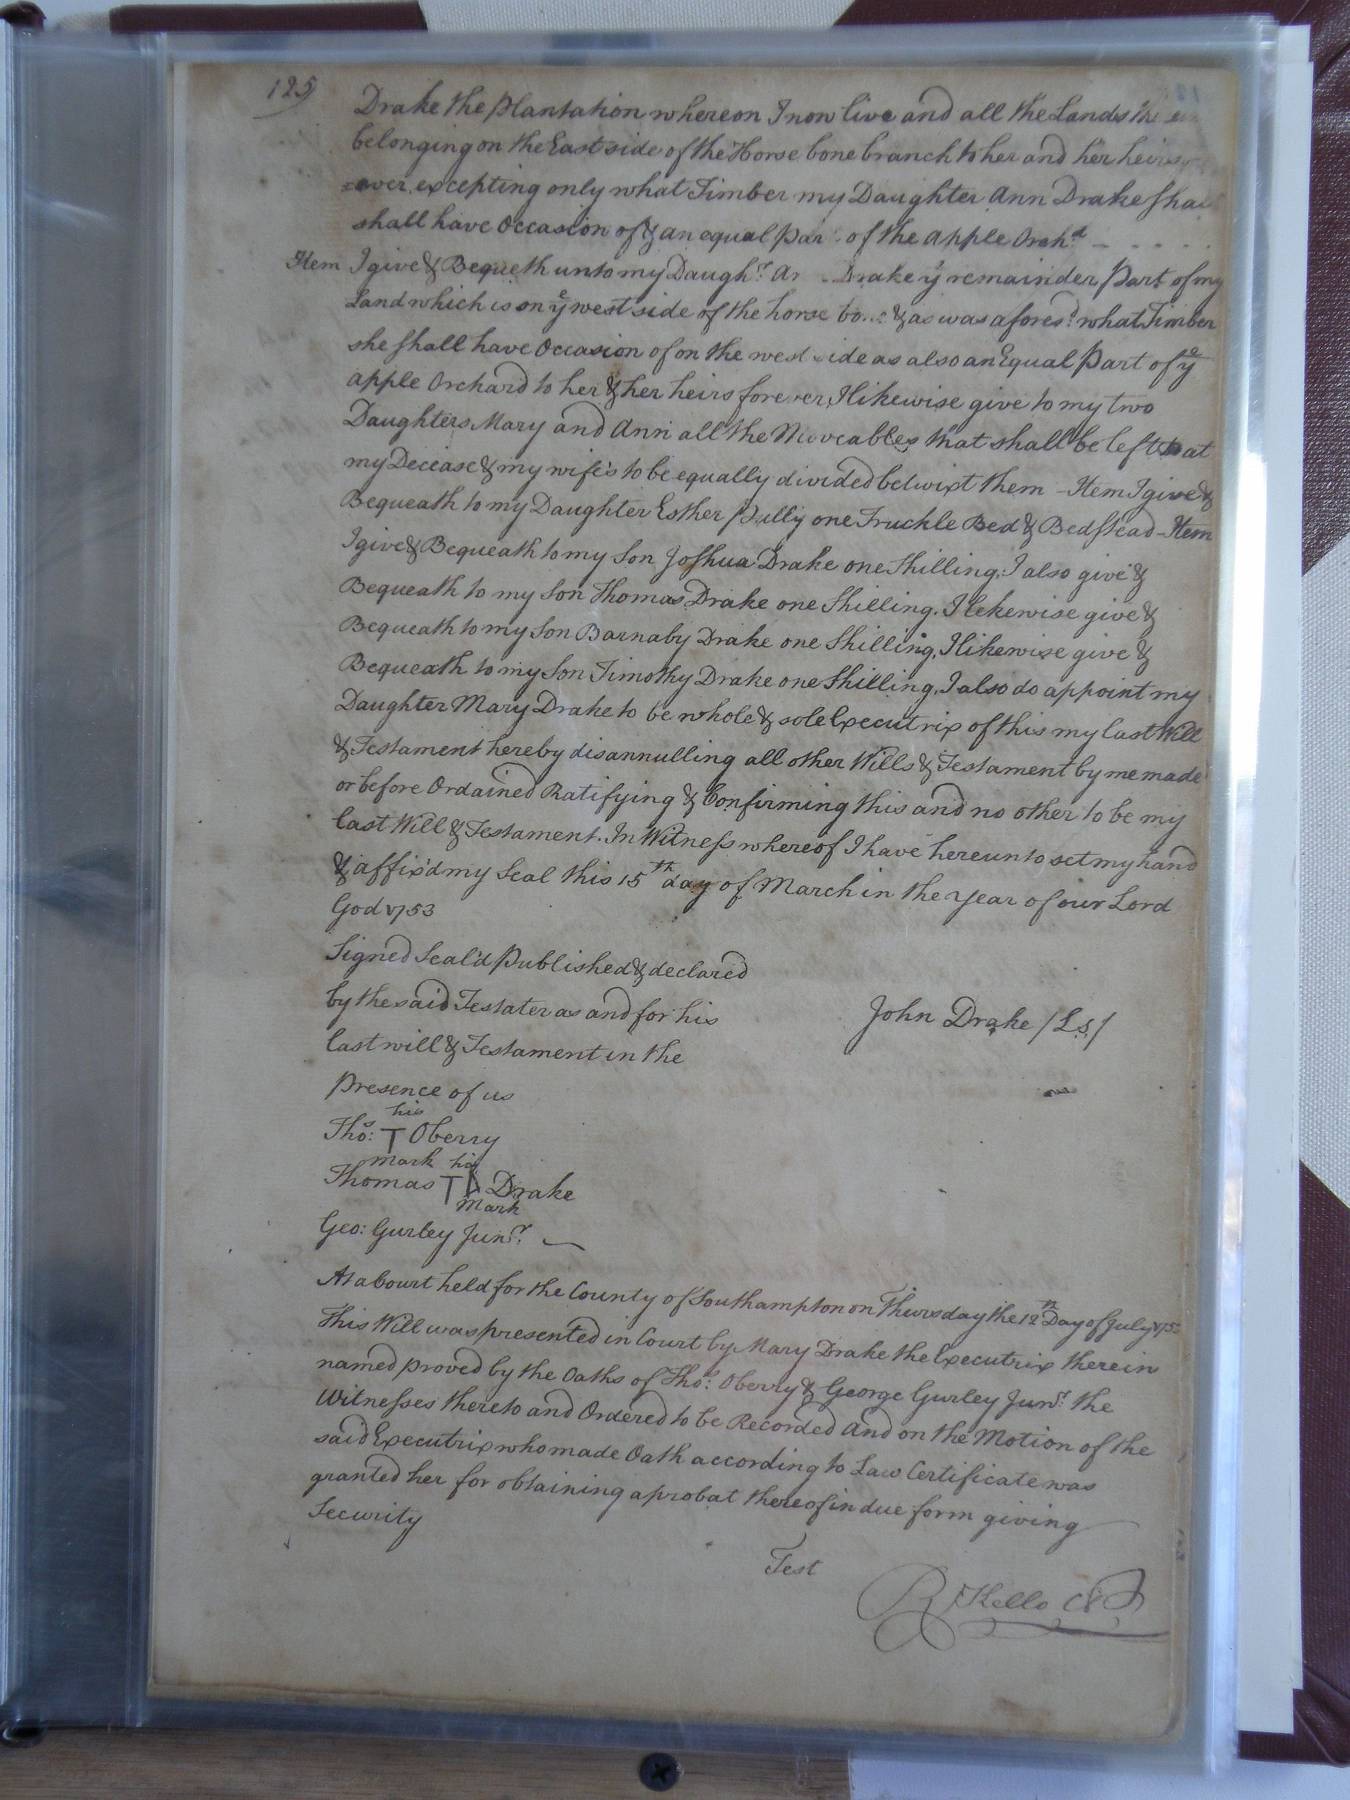 125
Drake the Plantation whereon I now live and all the Lands
belonging on the East side of the Horse bone branch to her and her heirs
=ever, excepting only what Timber my Daughter Ann Drake shall
shall have Occasion of & an equal Par of the apple Orch.d
Item I give & Bequeth unto my Daugh.r Drake y.e remainder Part of my
Land which is on y.e west side of the horse & as was afores.d what Timber
she shall have Occasion of on the west side as also an Equal Part of y.e
apple Orchard to her & her heirs forever, I likewise give to my two
Daughters Mary and Ann all the Moveables that shall be left at
my Decease & my wife's to be equally divided betwixt them - Item I give &
Bequeath to my Daughter Esther Pully one Truckle Bed & Bedstead - Item
I give & Bequeath to my Son Joshua Drake one Shilling, I also give &
Bequeath to my Son Thomas Drake one Shilling. I lekewise give &
Bequeath to my Son Barnaby Drake one Shilling, I likewise give &
Bequeath to my Son Timothy Drake one Shilling, I also do appoint my
Daughter Mary Drake to be whole & sole Executrix of this my last Will
& Testament hereby disannulling all other Wills & Testament by me made
or before Ordained Ratifying & Confirming this and no other to be my
last Will & Testament. In Witness whereof I have hereunto set my hand
& affix'd my Seal this 15th day of March in the year of our Lord
God 1753
Signed Seal'd Published & declared
by the said Testater as and for his
last will & Testament in the
Presence of us
John Drake /L.s/
his
Tho.s: T Oberry
mark his
Thomas TD Drake
mark
Geo: Gurley Jun.r
At a Court held for the County of Southampton on Thursday the 12th Day of July
This Will was presented in Court by Mary Drake the Executrix therein
named proved by the Oaths of Tho.s: Oberry & George Gurley Jun.r the
Witnesses thereto and Ordered to be Recorded And on the Motion of the
said Executrix who made Oath according to Law Certificate was
granted her for obtaining a probat thereof in due form giving
Security
Test
R Kello